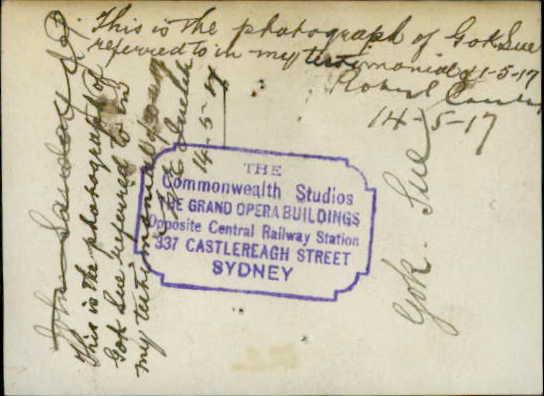 This is the photograph of Gok Sue
referred to in my testimonial of 1-5-17
Robert
14-5-17
THE
Commonwealth Studios
THE GRAND OPERA BUILDINGS
Opposite Central Railway Station
337 CASTLEREAGH STREET
SYDNEY
Gok Sue
John
This is the photograph of
Gok Sue referred to in
my testimonial
14-5-17